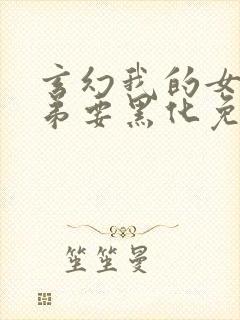 玄幻我的女
弟要黑化免
笙笙曼